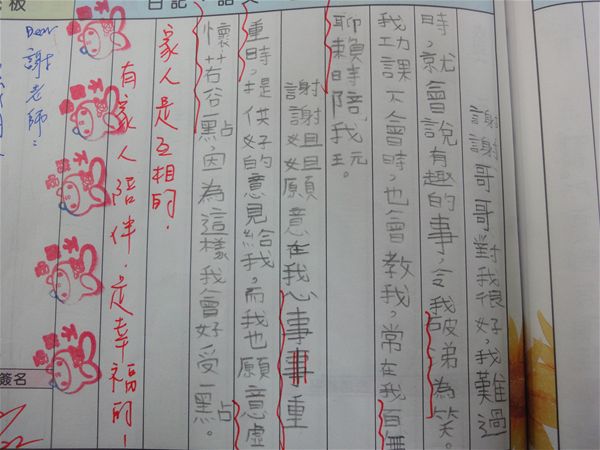 日記
謝謝哥哥對我很好，我難過
時，就會說有趣的事，令我破弟為笑。
我功課不會時，也會教我，常在我百無
聊賴時陪我玩。
謝謝姐姐願意在我心事事重
重時，提供好的意見給我，而我也願意虛
懷若谷一點，因為這樣我會好受一點。
家人是互相的.
有家人陪伴.是幸福的!
Dear 謝老師：
簽名